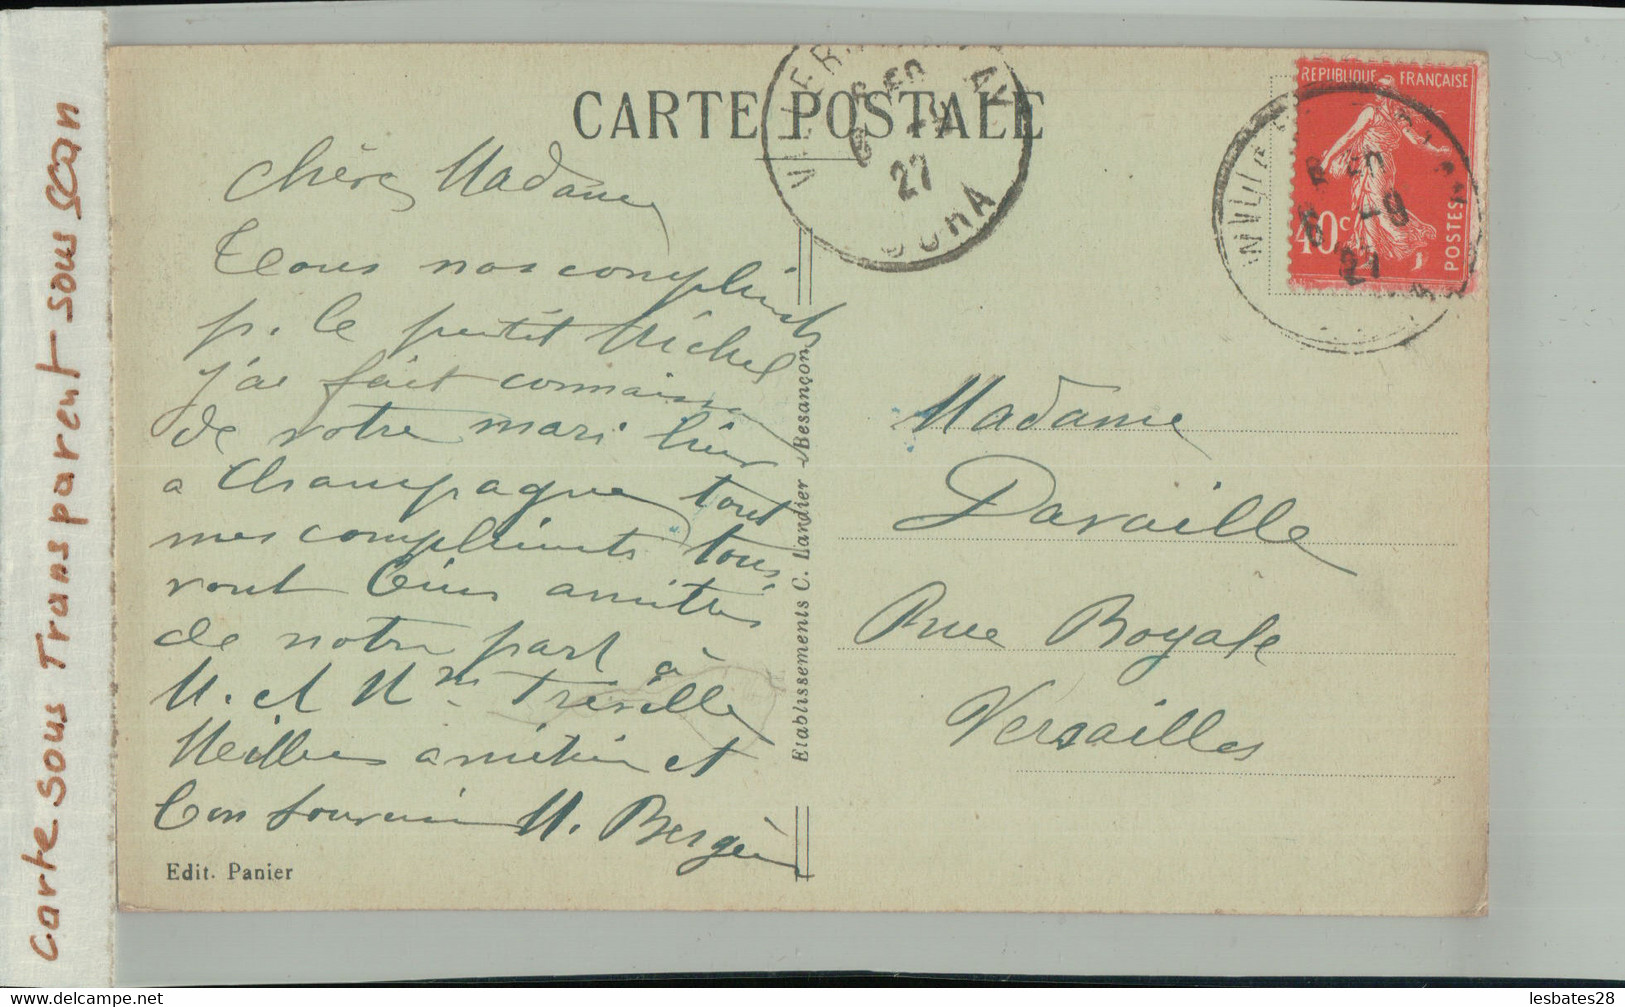 carte sous Transparent sous scan
CARTE POSTALE
JURA
27
RÉPUBLIQUE FRANÇAISE
40c
POSTES
-9
27
Chère Madame
Tous nos compliments
p. le petit Michel
j'ai fait connaissan
de votre mari hier
a Champagne tout
mes compliments tous
vont bien amitiés
de notre part à
M. et Mme Tréville
Meilleures amitiés et
bon souvenir M. Bergèr
Edit. Panier
Etablissements C. Lardier - Besançon
Madame
Davaille
Rue Royale
Versailles
lesbates28